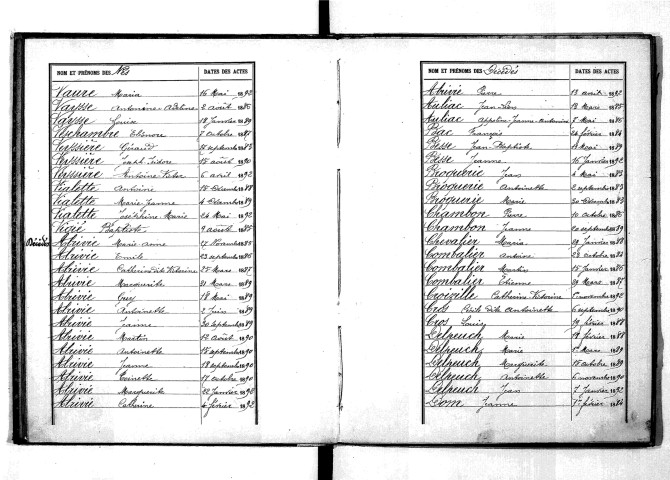 NOM ET PRÉNOMS DES Nés DATES DES ACTES
Vaure Maria 16 Mai 1892
Vaysse Antonine Adeline 2 août 1886
Vaysse Louise 18 Janvier 1889
Veschambre Eléonore 7 octobre 1887
Veyssière Géraud septembre 1883
Veyssière Joseph Isidore 15 août 1890
Veyssière Antoine Victor 6 avril 1892
Vialette Antoine 15 Décembre 1888
Vialette Marie Jeanne 4 Décembre 1889
Vialette Joséphine Marie 24 Mai 1892
Vigié Baptiste 9 août 1885
Décédés Abrivié Marie Anne 17 Novembre 1885
Abrivié Emile 23 septembre 1886
Abrivié Catherine dite Victorine 25 Mars 1887
Abrivié Marguerite 31 Mars 1889
Abrivié Guy 18 Mai 1889
Abrivié Antoinette 2 Juin 1889
Abrivié Jeanne 30 septembre 1889
Abrivié Martin 12 août 1890
Abrivié Antoinette 15 septembre 1890
Abrivié Jeanne 18 septembre 1890
Abrivié Toinette 17 octobre 1890
Abrivié Marguerite 22 Janvier 1892
Abrivié Catherine 4 février 1892
NOM ET PRÉNOMS DES Décédés DATES DES ACTES
Abrivié Pierre 13 août 1892
Auliac Jean Léon 18 Mars 1885
Auliac Appoline Jeanne Antonine 8 Mai 1886
Bac François 24 février 1884
Besse Jean Baptiste Mai 1889
Besse Jeanne 16 Janvier 1892
Broquerie Jean 4 Mai 1883
Broquerie Antoinette 2 septembre 1883
Broquerie Marie 20 Décembre 1883
Chambon Pierre 10 octobre 1886
Chambon Jeanne 20 septembre 1889
Chevalier Maria 29 Janvier 1888
Combalier Antoine 28 octobre 1884
Combalier Martin 15 Janvier 1886
Combalier Étienne 29 Mars 1887
Croizille Catherine Victorine 5 novembre 1892
Cros Petite dite Antoinette 6 septembre 1890
Cros Louise 19 février 1888
Delpeuch Marie 19 février 1888
Delpeuch Marie 1er Mars 1889
Delpeuch Marguerite 15 octobre 1889
Delpeuch Antoinette 6 novembre 1890
Delpeuch Jean 7 Janvier 1892
Dom Jeanne 1er février 1884